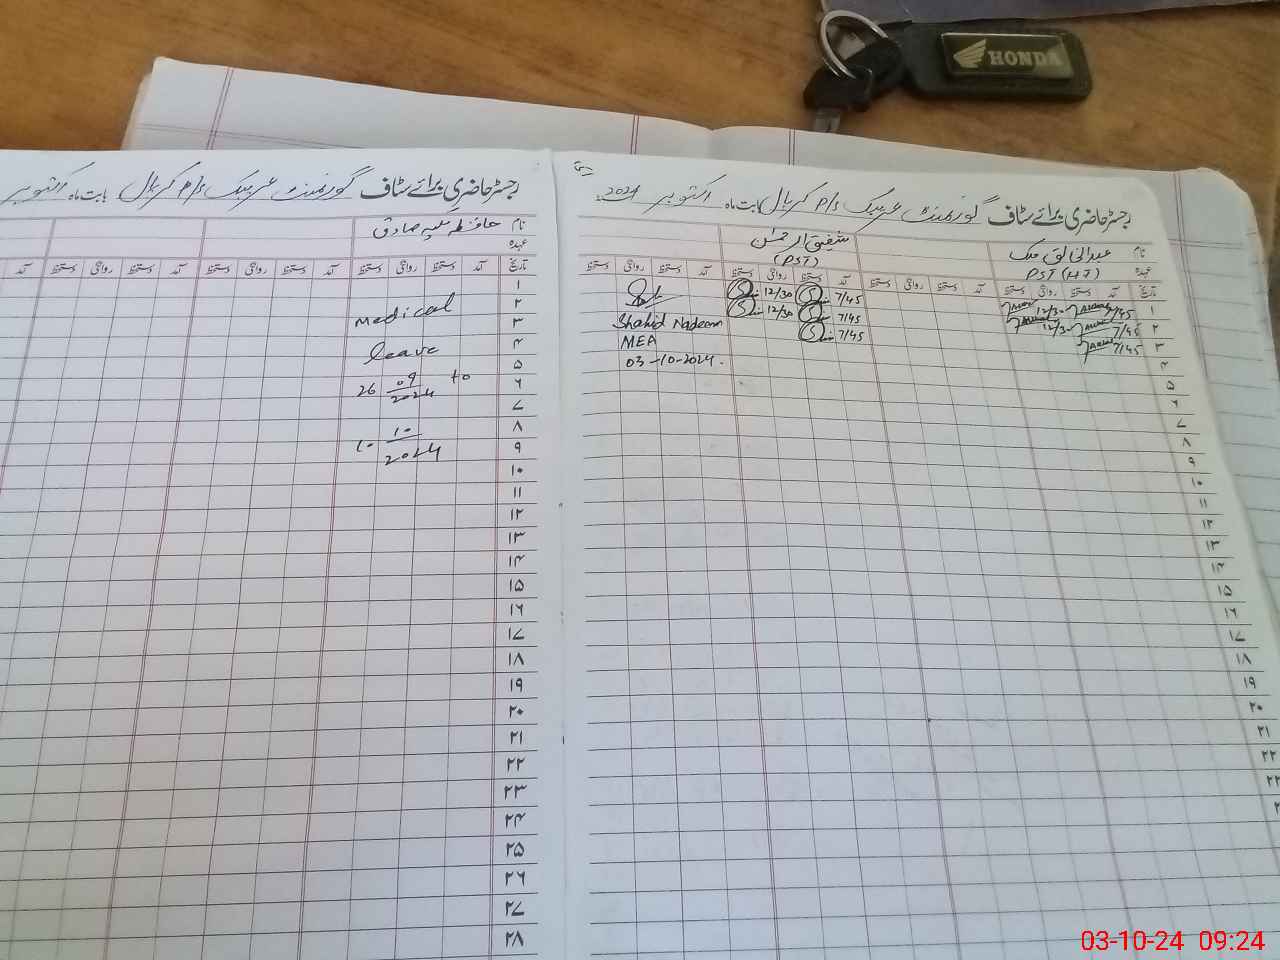 HONDA
رجسٹر حاضری برائے سٹاف گورنمنٹ بابت ماہ اکتوبر 2024
نام عبدالخالق ملک
عہدہ PST (HT)
شفیق الرحمٰن
(PST)
تاریخ آمد دستخط روانگی دستخط آمد دستخط روانگی دستخط آمد دستخط روانگی دستخط آمد دستخط روانگی دستخط
۱ 7/45 12/30 7/45 12/30
۲ 7/45 12/30 7/45 12/30
۳ 7/45 7/45
Shahid Nadeem
MEA
03-10-2024.
۴
۵
۶
۷
۸
۹
۱۰
۱۱
۱۲
۱۳
۱۴
۱۵
۱۶
۱۷
۱۸
۱۹
۲۰
۲۱
۲۲
رجسٹر حاضری برائے سٹاف گورنمنٹ بابت ماہ اکتوبر
نام حافظہ صادق
عہدہ
تاریخ آمد دستخط روانگی دستخط آمد دستخط روانگی دستخط آمد دستخط روانگی دستخط آمد
۱
۲ Medical
۳
۴ leave
۵
۶ 26 09/2024 to
۷
۸ 10 10/2024
۹
۱۰
۱۱
۱۲
۱۳
۱۴
۱۵
۱۶
۱۷
۱۸
۱۹
۲۰
۲۱
۲۲
۲۳
۲۴
۲۵
۲۶
۲۷
۲۸
03-10-24 09:24